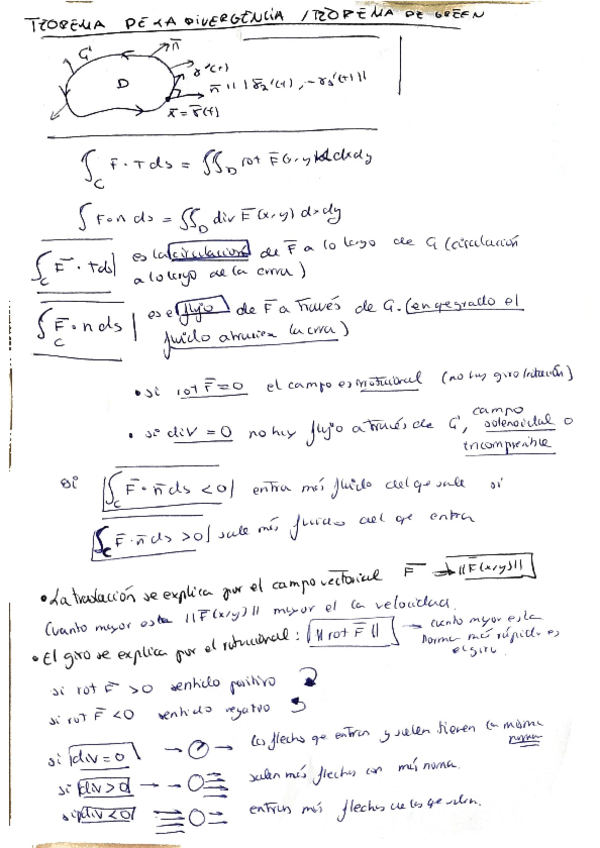 TEOREMA DE LA DIVERGENCIA / TEOREMA DE GREEN
G n̄
γ'(t)
D n̄ || (γ̄₂'(t), -γ₁'(t))
x̄ = γ̄(t)
∫_C F · T ds = ∬_D rot F(x, y) dxdy
∫ F · n ds = ∬_D div F̄(x,y) dxdy
∫_C F̄ · T ds | es la circulación de F̄ a lo largo de G (circulación
a lo largo de la curva)
∫_C F̄ · n ds | es el flujo de F̄ a través de G. (en qe grado el
fluido atraviesa la curva)
• si rot F̄ = 0 el campo es irrotacional (no hay giro/rotación)
• si div = 0 no hay flujo a través de G, campo
solenoidal o
incompresible
Si ∫_C F̄ · n̄ ds < 0 | entra más fluido del qe sale si
∫_C F̄ · n̄ ds > 0 | sale más fluido del qe entra
• La traslación se explica por el campo vectorial F̄ → ||F̄(x,y)||
Cuanto mayor esta ||F̄(x,y)|| mayor el la velocidad.
• El giro se explica por el rotacional: || rot F̄ || → cuanto mayor esta
norma más rápido es
el giro.
si rot F̄ > 0 sentido positivo
si rot F̄ < 0 sentido negativo
si div = 0 → O → las flechas que entran y salen tienen la misma
norma
si div > 0 → O salen más flechas con más norma.
si div < 0 O → entran más flechas de las qe salen.